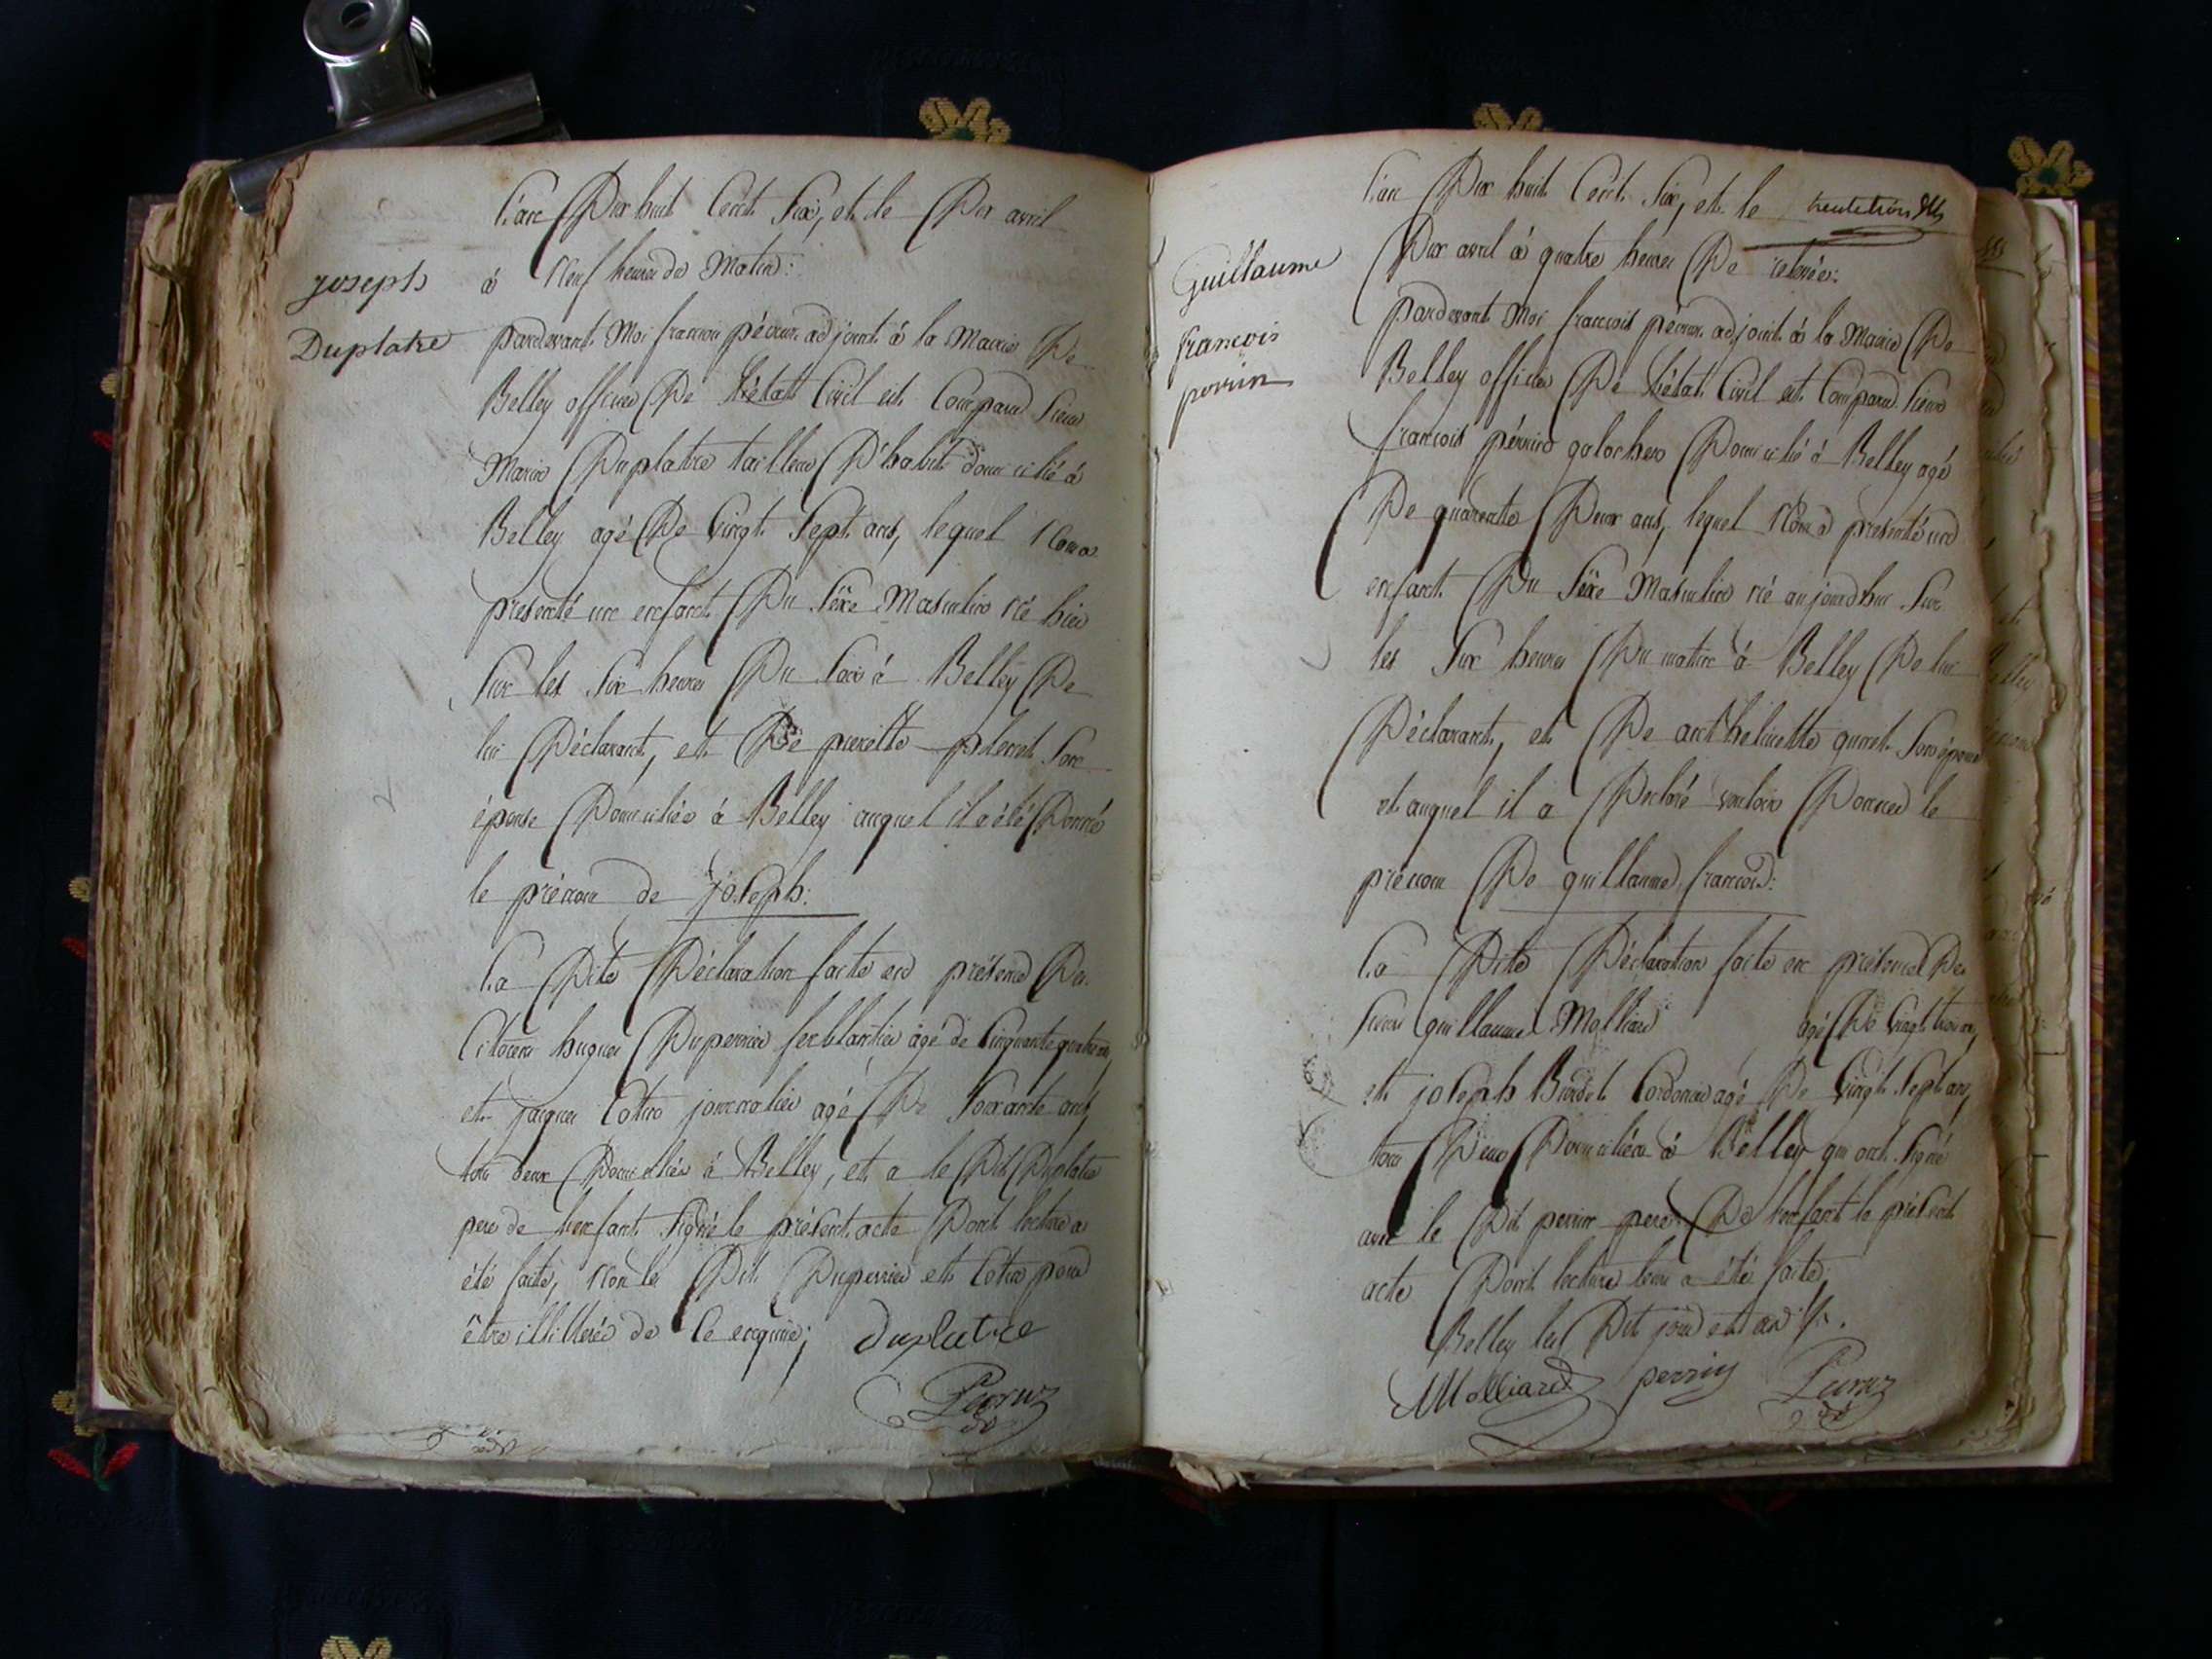 L'an Dix huit Cent Six, et le Dix avril
à Neuf heures du Matin:
joseph
Duplatre
pardevant Moi françois pécrus adjoint à la Mairie De
Belley officier De l'état Civil est Comparu Sieur
Marin Duplatre tailleur D'habit domicilié à
Belley agé De Vingt Sept ans, lequel Nous a
presenté un enfant Du Sèxe Masculin né hier
Sur les Six heures Du Soir à Belley De
lui Déclarant, et De pierrette son
épouse Domiciliée à Belley auquel il a été Donné
le prénom de joseph:
La Dite Déclaration faite en présence Des
Citoiens hugues Duperrier ferblantier agé de Cinquante quatre ans,
et jacques Cottin journalier agé De Soixante ans,
tous deux Domiciliés à Belley, et a le Dit Duplatre
pere de l'enfant Signé le présent acte Dont lecture a
été faite, Non les Dit Duperrier et Cottin pour
être illiterés de Ce enquis; duplatre
L'an Dix huit Cent Six, et le trentetrois
Dix avril à quatre heures De relevée:
Guillaume
françois
perrin
pardevant Moi françois pécrus adjoint à la Mairie De
Belley officier De l'état Civil est Comparu Sieur
françois pérrin galocher Domicilié à Belley agé
De quarente Deux ans, lequel Nous a presenté un
enfant Du Sèxe Masculin né aujourdhui Sur
les Six heures Du matin à Belley De lui
Déclarant, et De anthelmette Son épouse
et auquel il a Déclaré vouloir Donner le
prénom De guillaume françois:
La Dite Déclaration faite en présence Des
Sieurs guillaume Molliard agé De Vingt trois ans,
et joseph Cordonier agé De Vingt Sept ans,
tous Deux Domiciliés à Belley qui ont Signé
avec le Dit perrin pere De l'enfant le présent
acte Dont lecture leur a été faite;
Belley les Dit jour et an
Molliard perrin